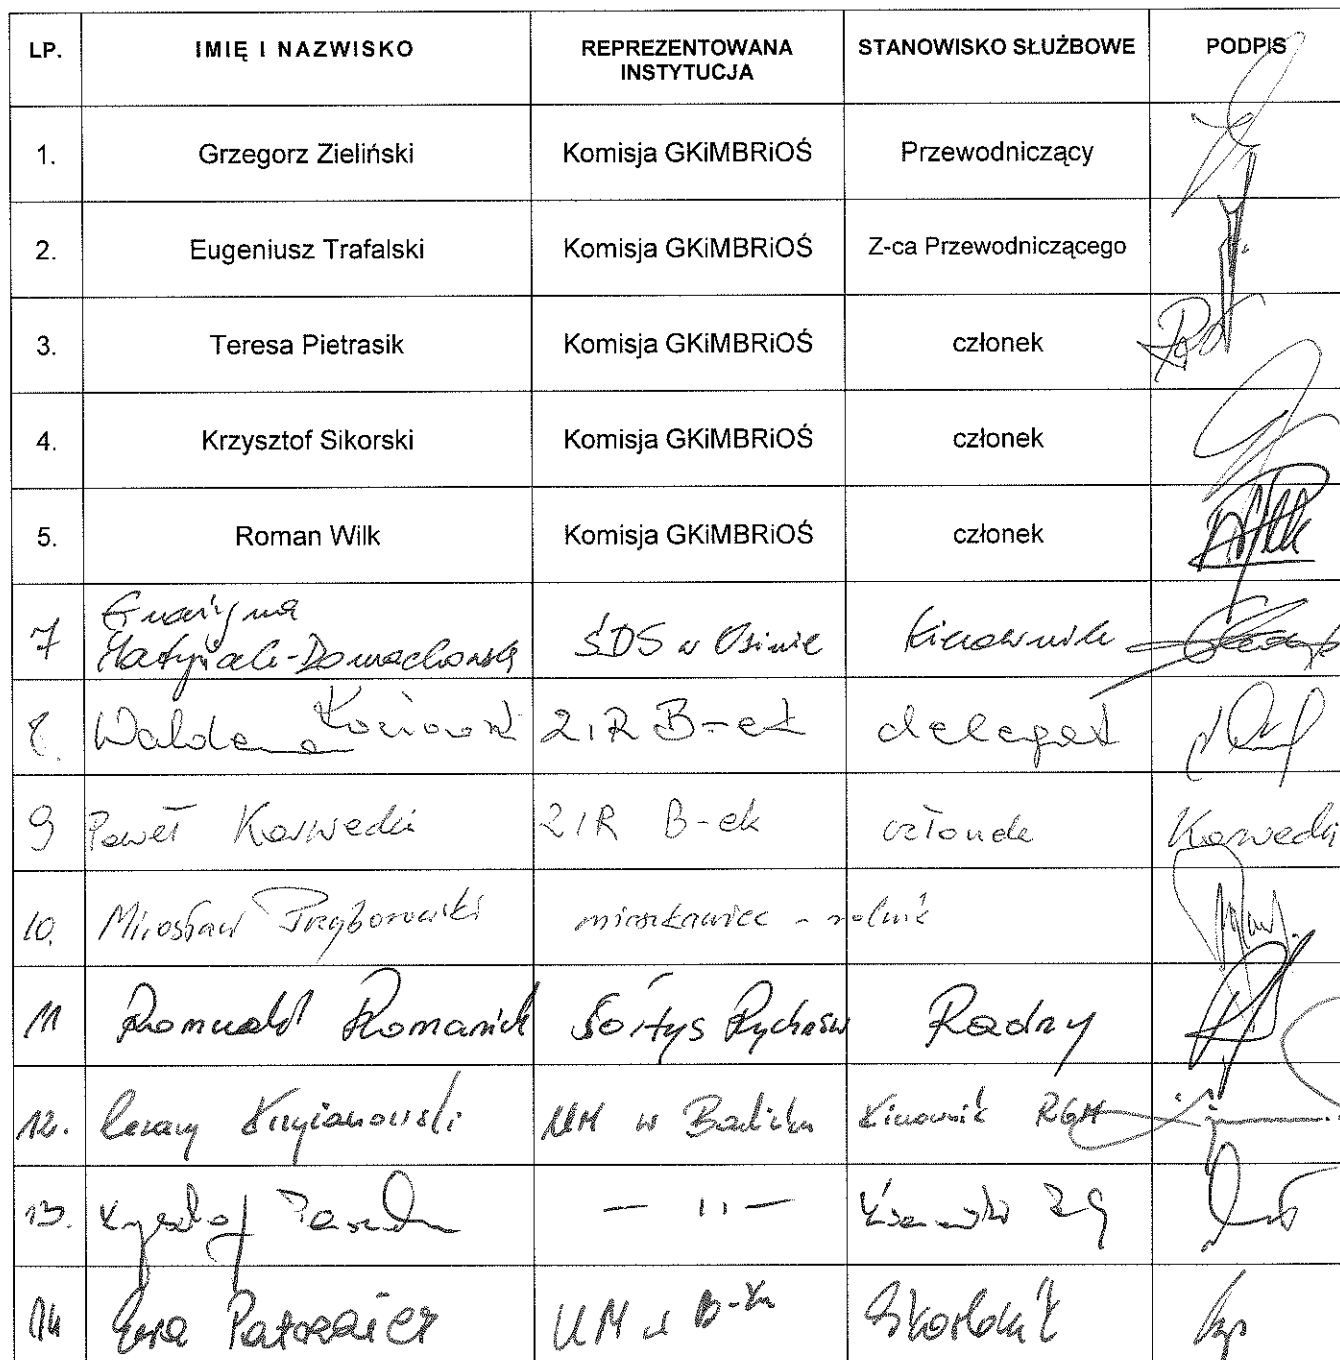 LP. IMIĘ I NAZWISKO REPREZENTOWANA INSTYTUCJA STANOWISKO SŁUŻBOWE PODPIS
1. Grzegorz Zieliński Komisja GKiMBRiOŚ Przewodniczący
2. Eugeniusz Trafalski Komisja GKiMBRiOŚ Z-ca Przewodniczącego
3. Teresa Pietrasik Komisja GKiMBRiOŚ członek
4. Krzysztof Sikorski Komisja GKiMBRiOŚ członek
5. Roman Wilk Komisja GKiMBRiOŚ członek
7 Grażyna
ŚDS w Osinie Kierownik
8. Waldemar ZIR B-ek delegat
9 Paweł Karwecki ZIR B-ek członek Karwecki
10. Mirosław Przyborowski mieszkaniec - rolnik
11 Romuald Romanick Sołtys Rychnów Radny
12. Cezary Krzyżanowski UM w Barlinku Kierownik RGM
13. Krzysztof — 11 —
14 Ewa UM w B-ku